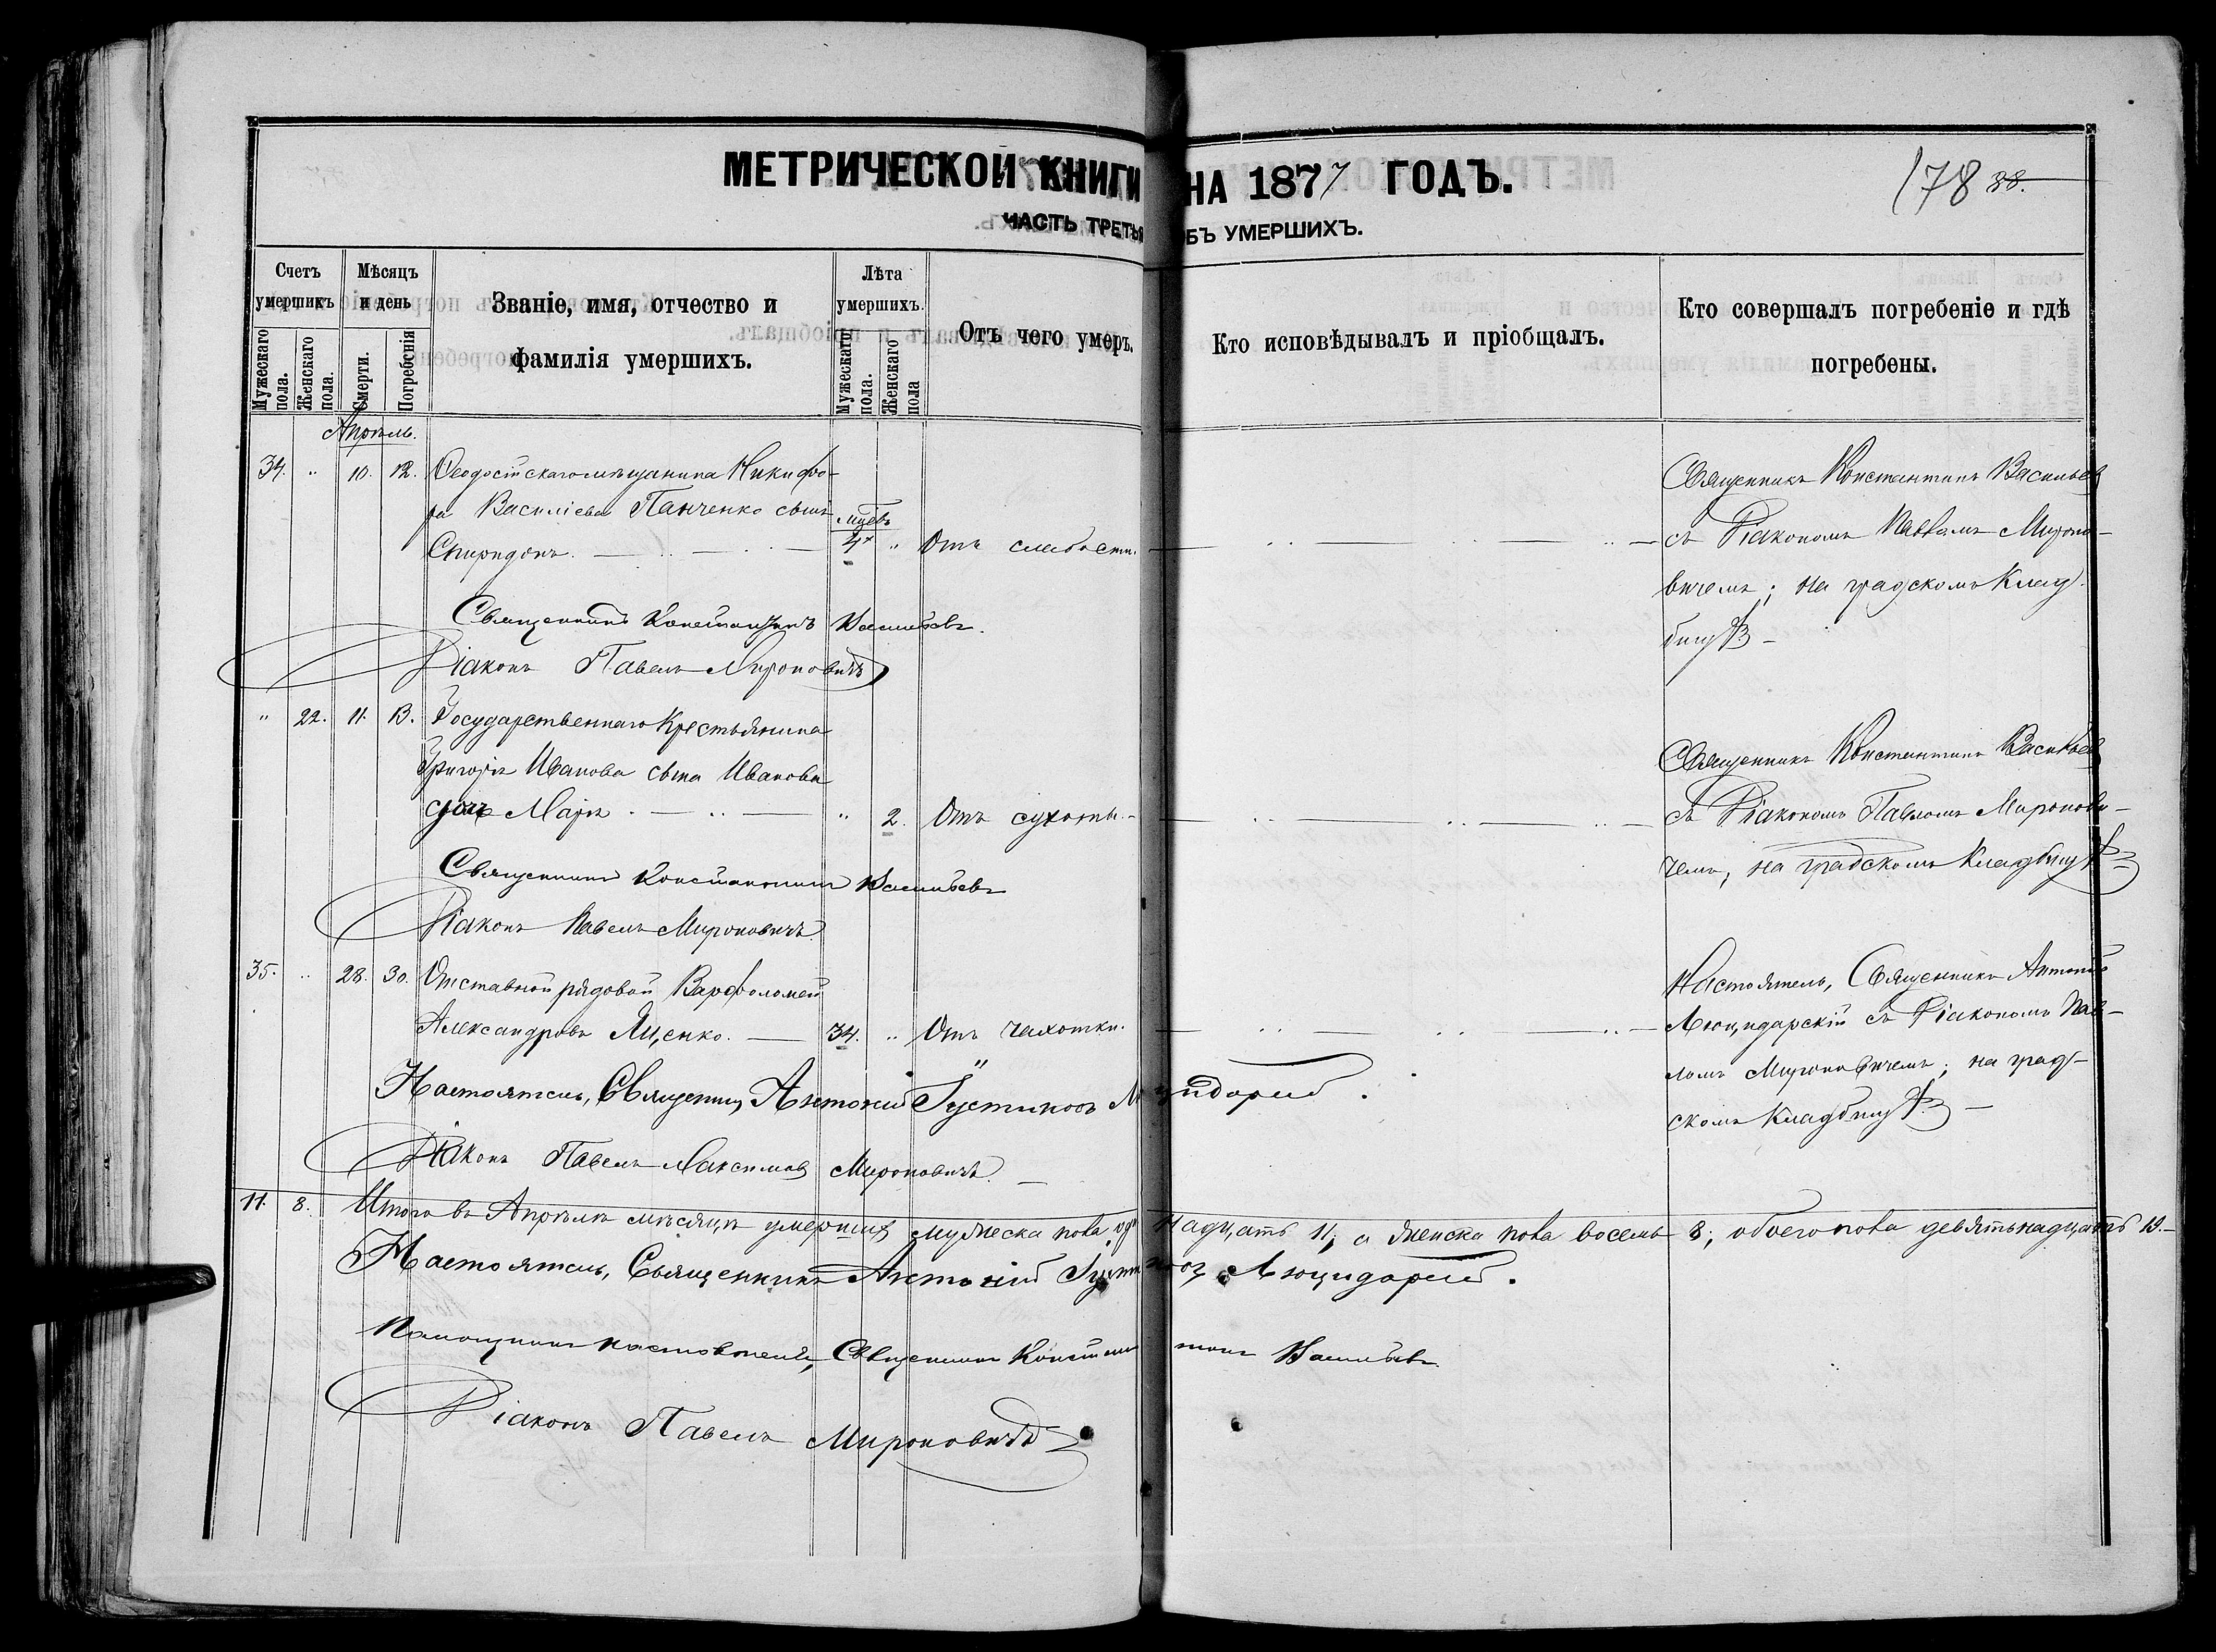 МЕТРИЧЕСКОЙ КНИГИ НА 1877 ГОДЪ.
178 38.
ЧАСТЬ ТРЕТЬЯ ОБЪ УМЕРШИХЪ.
Счетъ умершихъ
Мужескаго пола.
Женскаго пола.
Мѣсяцъ и день
Смерти.
Погребенія
Званіе, имя, отчество и
фамилія умершихъ.
Лѣта умершихъ.
Мужескаго пола.
Женскаго пола
Отъ чего умеръ.
Кто исповѣдывалъ и пріобщалъ.
Кто совершалъ погребеніе и гдѣ
погребены.
Апрѣль.
34. " 10. 12. Ѳеодосійскаго мѣщанина Никифо-
ра Василіева Панченко сынъ
Спиридонъ. мѣсяц. 4 " Отъ слабости.
Священникъ Константинъ Васильев
съ Діакономъ Павломъ Миропо-
вичемъ; на градскомъ Клад
бищѣ
Священникъ Константинъ Васильевъ.
Діаконъ Павелъ Мироновичъ
" 22. 11. 13. Государственнаго Крестьянина
Григорія Иванова сына Иванова
дочь Марія " 2. Отъ сухоты.
Священникъ Константинъ Васильев
съ Діакономъ Павломъ Миронови-
чемъ, на градскомъ Кладбищѣ
Священникъ Константинъ Васильевъ
Діаконъ Павелъ Мироновичъ.
35. " 28. 30. Отставной рядовой Варфоломей
Александровъ Яценко. 34. " Отъ чахотки.
Настоятель, Священникъ Антоній
Люцидарскій съ Діакономъ Пав-
ломъ Мироновичемъ; на град-
скомъ Кладбищѣ
Настоятель, Священникъ Антоній
Діаконъ Павелъ Максимовъ Мироновичъ.
11. 8. Итого въ Апрѣлѣ мѣсяцѣ умершихъ мужеска пола одинадцать 11; а женска пола восемь 8; обоего пола девятьнадцать 19.
Настоятель, Священникъ Антоній
Помощникъ настоятеля, Священникъ Константинъ Васильевъ
Діаконъ Павелъ Мироновичъ